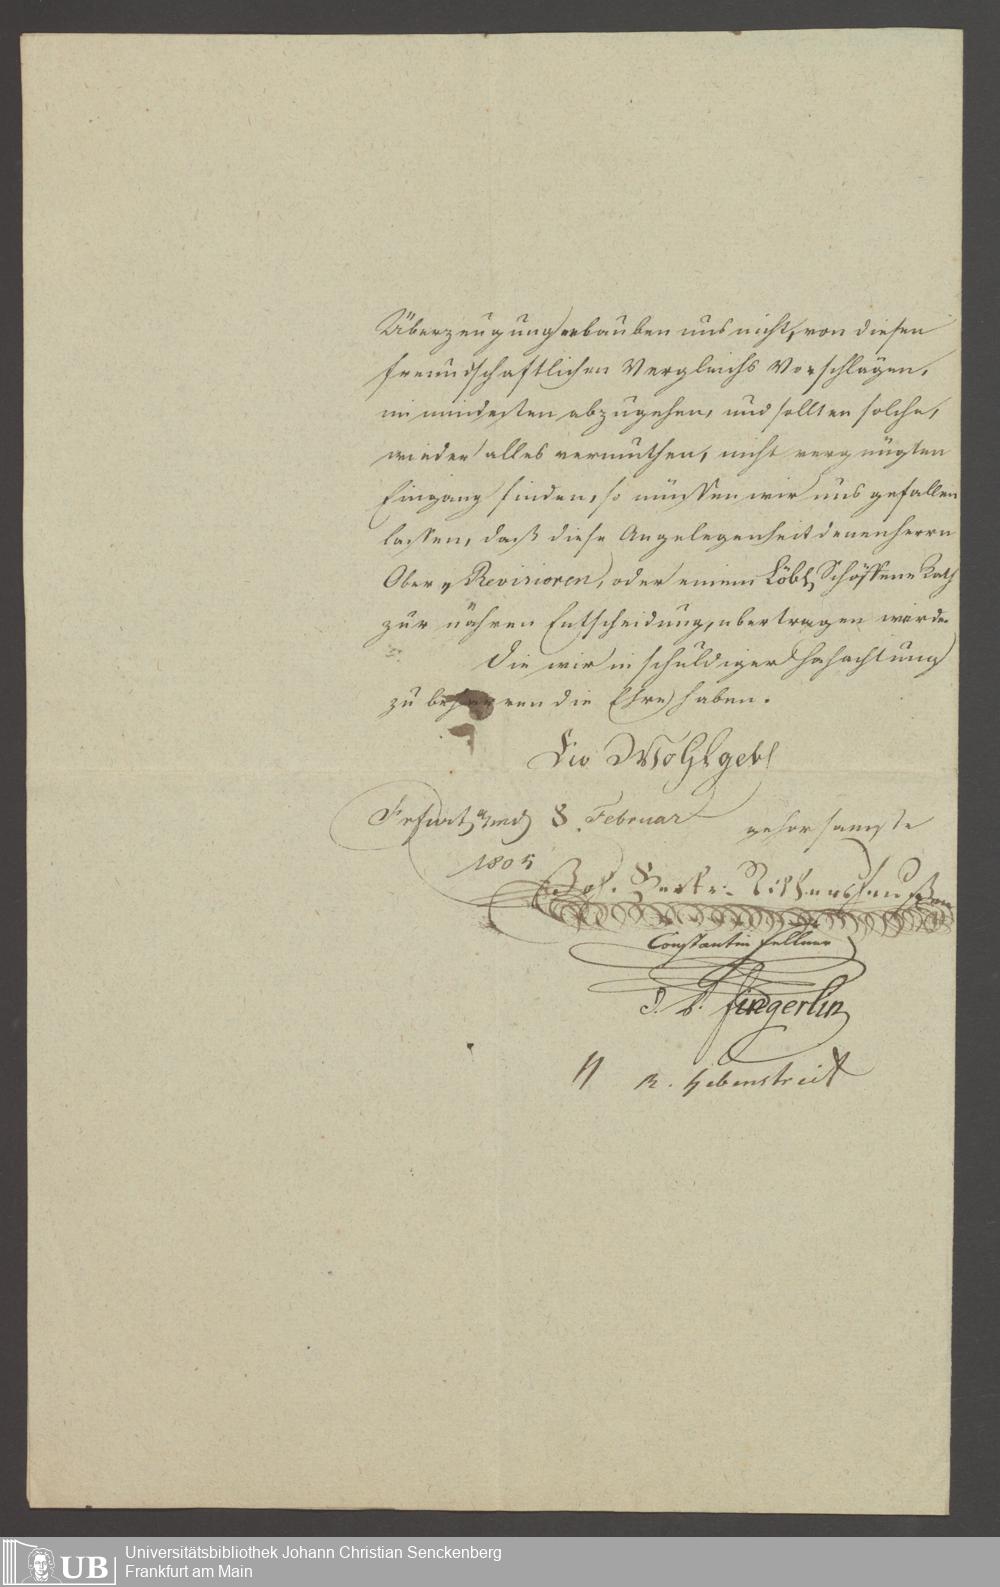 Überzeugung erlauben uns nicht, von diesen
freundschaftlichen Vergleichs Vorschlägen,
im mindesten abzugehen, und sollten solche,
wieder alles vermuthen, nicht vergnügten
Eingang finden, so müssen wir uns gefallen
lassen, daß diese Angelegenheit denen herrn
Ober Revisioren, oder einem Löbl. Schöffene Rath
zur nähren Entscheidung, ubertragen werde.
Die wir in schuldiger Hochachtung
zu beharren die Ehre haben.
Ew Wohlgeb
8. Februar gehorsamste
1805
Joh.
Constantin Fellner
Fingerlin
Hebenstreit
Universitätsbibliothek Johann Christian Senckenberg
Frankfurt am Main
UB